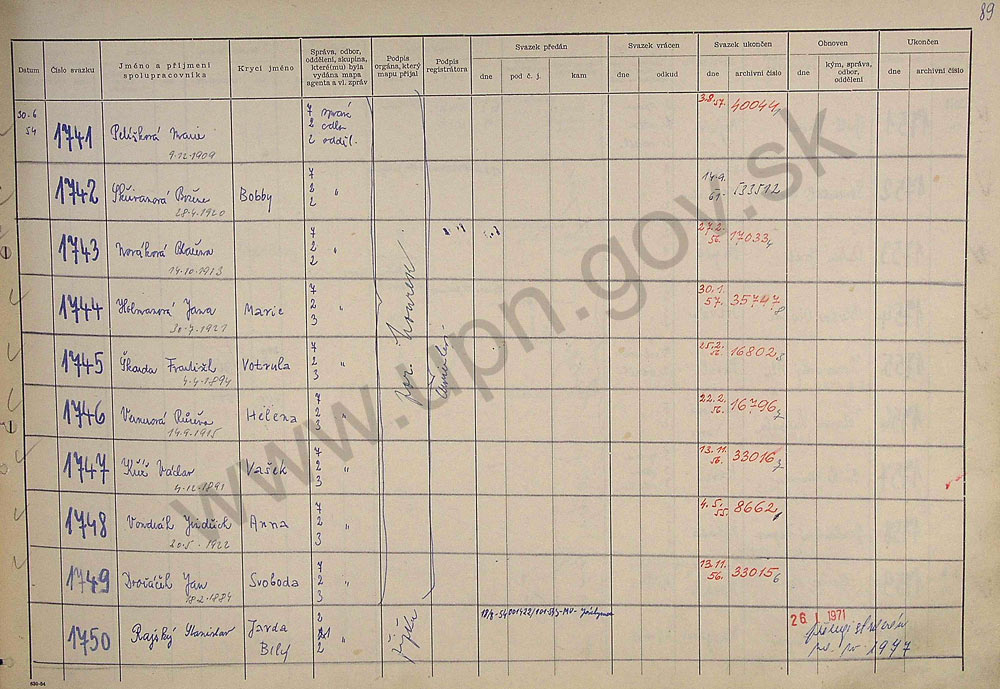 89
Datum
Číslo svazku
Jméno a příjmení spolupracovníka
Krycí jméno
Správa, odbor, oddělení, skupina, které(mu) byla vydána mapa agenta a vl. zpráv
Podpis orgána, který mapu přijal
Podpis registrátora
Svazek předán
dne
pod č. j.
kam
Svazek vrácen
dne
odkud
Svazek ukončen
dne
archivní číslo
Obnoven
dne
kým, správa, odbor, oddělení
Ukončen
dne
archivní číslo
30.6 54 1741 Pelíšková Marie 7 správa 3.8.57. 40044
9.12.1909 2 odbor
2 odděl.
1742 Božena Bobby 7 2 2 " 14.9. 61
28.4.1920
1743 Nováková Blažena 7 2 2 " 27.2. 56. 17033
14.10.1913
1744 Jana Marie 7 2 3 " 30.1. 57. 35747
1745 Škauda František Votrula 7 2 3 " 25.2. 56. 16802
4.4.1894
1746 Vernerová Růžena Helena 7 2 3 " 22.2. 56. 16796
14.9.1915
1747 Kříž Václav Vašek 7 2 3 " 13.11. 56. 33016
4.12.1891
1748 Vondrák Jindřich Anna 7 2 3 " 4.5. 55. 8662
20.5.1922
1749 Jan Svoboda 7 2 3 " 13.11. 56. 33015
18.2.1884
1750 Rajský Stanislav Jarda Bílý 2 2 " 26. 1. 1971
1947
www.upn.gov.sk